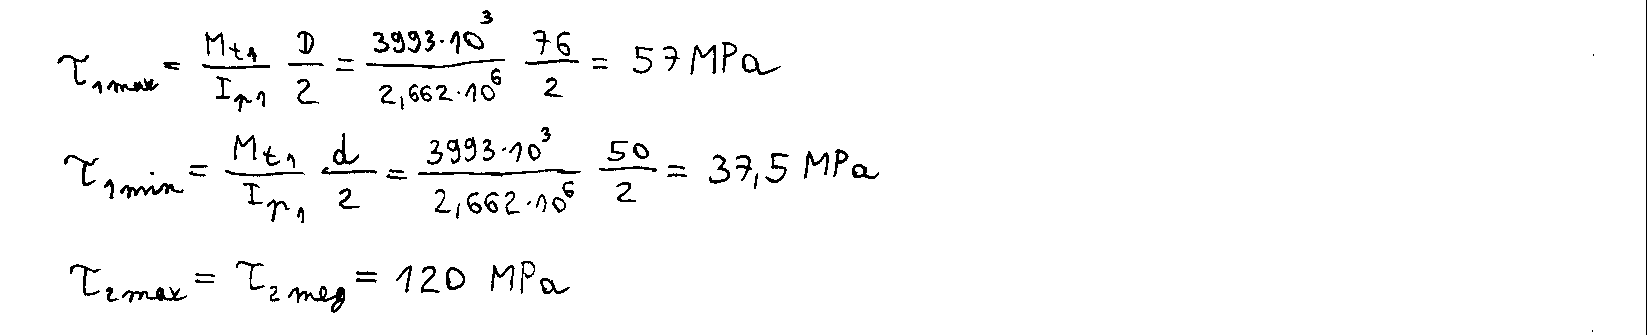 τ₁max = Mt₁/Ip₁ D/2 = 3993·10³/2,662·10⁶ 76/2 = 57 MPa
τ₁min = Mt₁/Ip₁ d/2 = 3993·10³/2,662·10⁶ 50/2 = 37,5 MPa
τ₂max = τ₂meg = 120 MPa